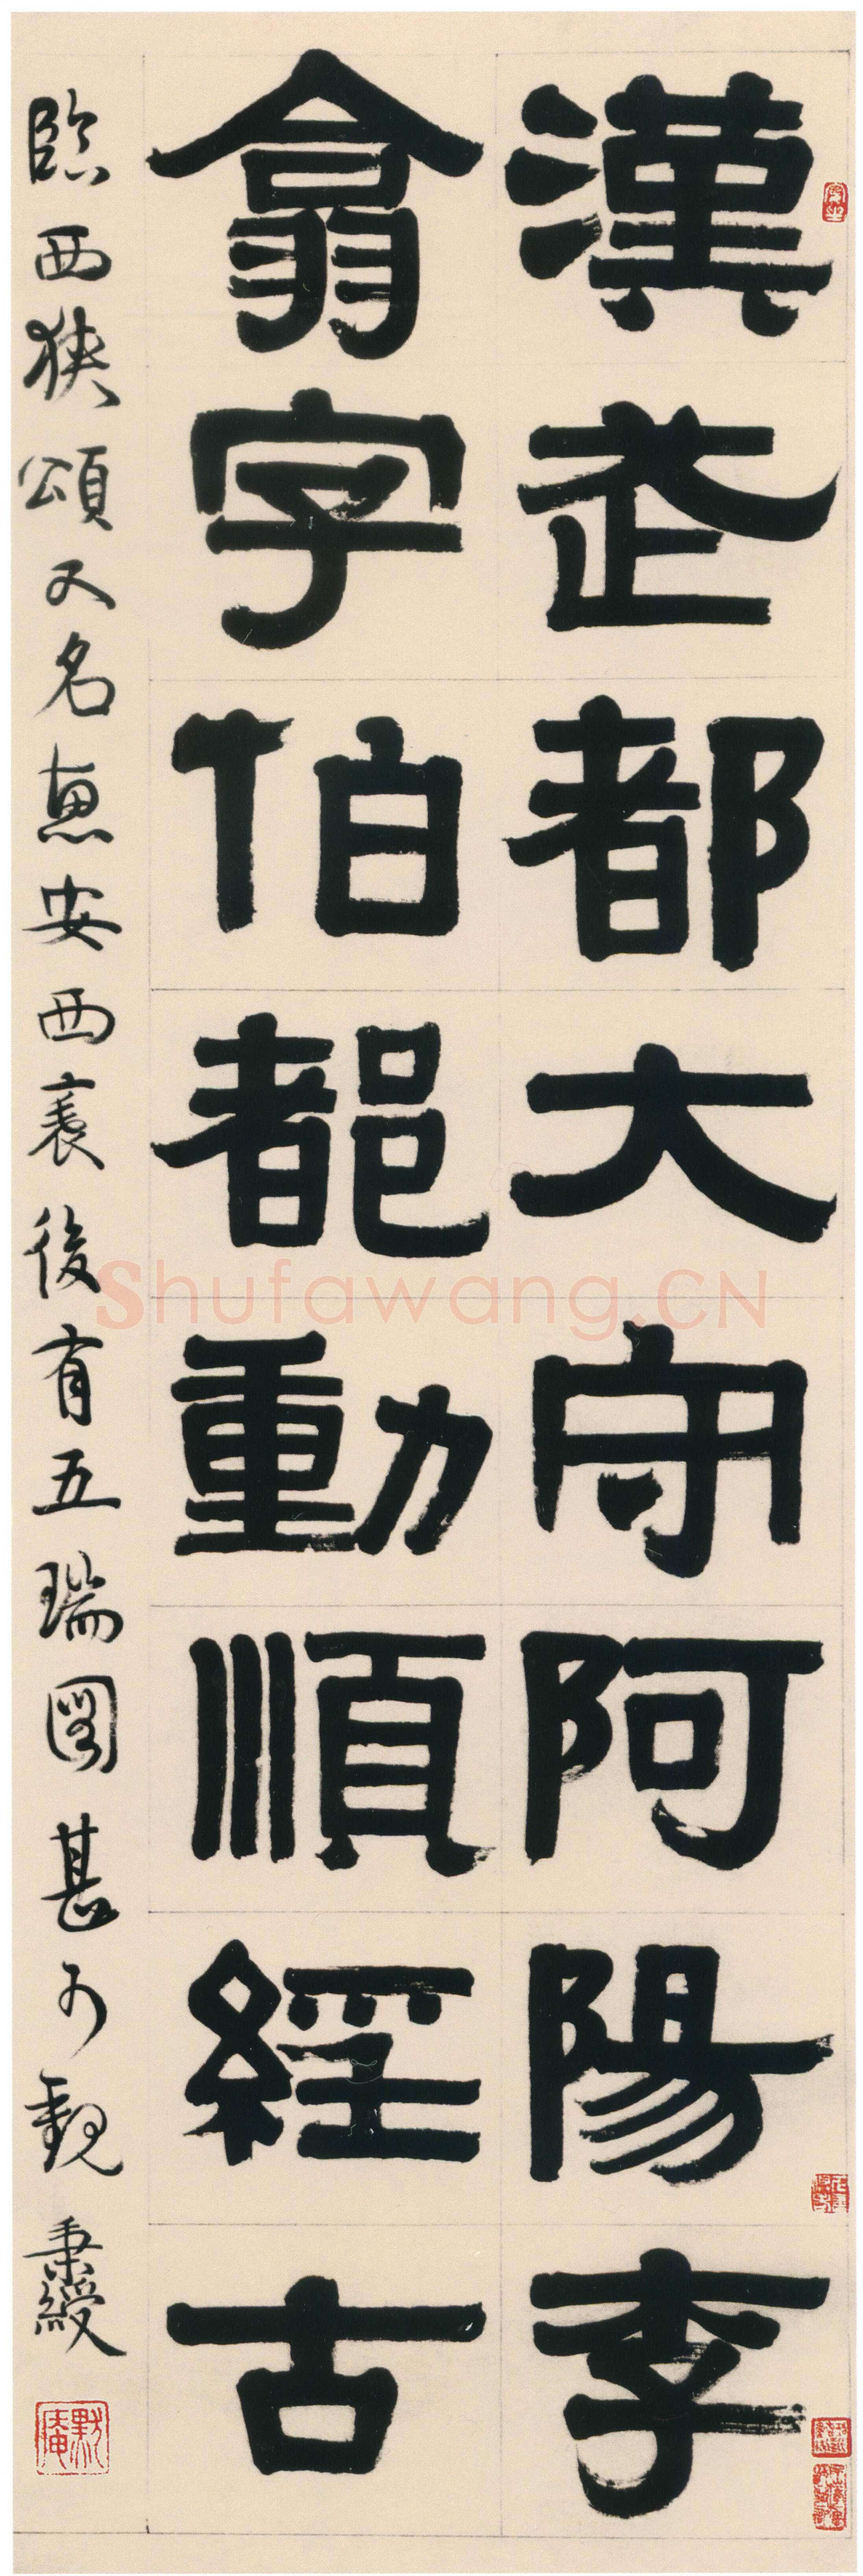 漢武都大守阿陽李
翕字伯都動順經古
臨西狹頌又名惠安西表後有五瑞圖甚可觀 秉綬
默庵
Shufawang.CN